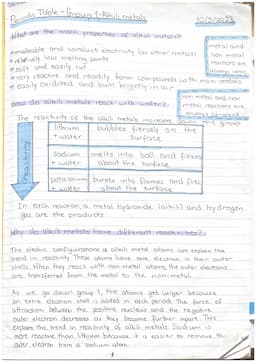 Periodic Table - Group 1 - Alkali metals
10/3/2023
What are the main properties of alkali metals?
malleable and conduct electricity (as other metals)
relatively low melting points
soft and easily cut
very reactive and readily form compounds with non-metals
easily oxidised and burn brightly in air
metal and
non metal
reactions are
always ionic
How do alkali metals react with water?
non metal and non
metal reactions are
always covalent
The reactivity of the alkali metals increases down the group
Reactivity
lithium
+ water
bubbles fiercely on the
surface
sodium
+ water
melts into ball and fizzes
about the surface
potassium
+ water
bursts into flames and flies
about the surface
In each reaction, a metal hydroxide (alkali) and hydrogen
gas are the products
Why do alkali metals have different reactivities?
The electric configurations of alkali metal atoms can explain the
trend in reactivity. These atoms have one electron in their outer
shells. When they react with non-metal atoms, the outer electrons
are transferred from the metal to the non-metal.
As we go down group 1, the atoms get larger because
an extra electron shell is added in each period. The force of
attraction between the positive nucleus and the negative
outer electron decreases as they become further apart. This
explains the trend in reactivity of alkali metals. Sodium is
more reactive than lithium because it is easier to remove the
outer electron from a sodium atom.